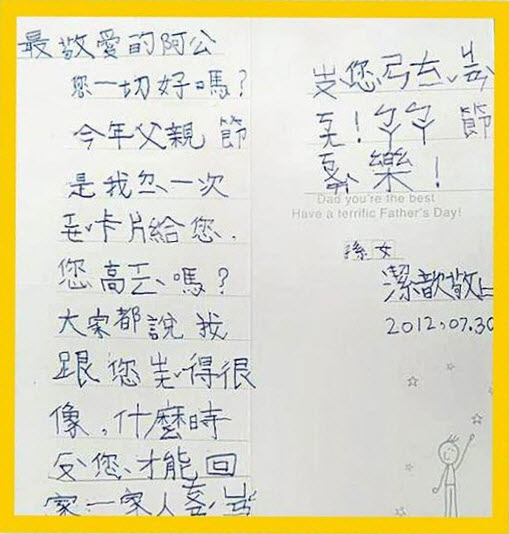 最敬愛的阿公
您一切好嗎?
今年父親節
是我一次
卡片給您.
您高嗎?
大家都說我
跟您ㄓㄤˇ得很
像,什麼時
您才能回
家一家人
ㄓㄨˋ您
!ㄅㄚㄅㄚ節
ㄎㄨㄞˋ樂!
Dad you're the best
Have a terrific Father's Day!
孫女
潔歆敬上
2012.07.30